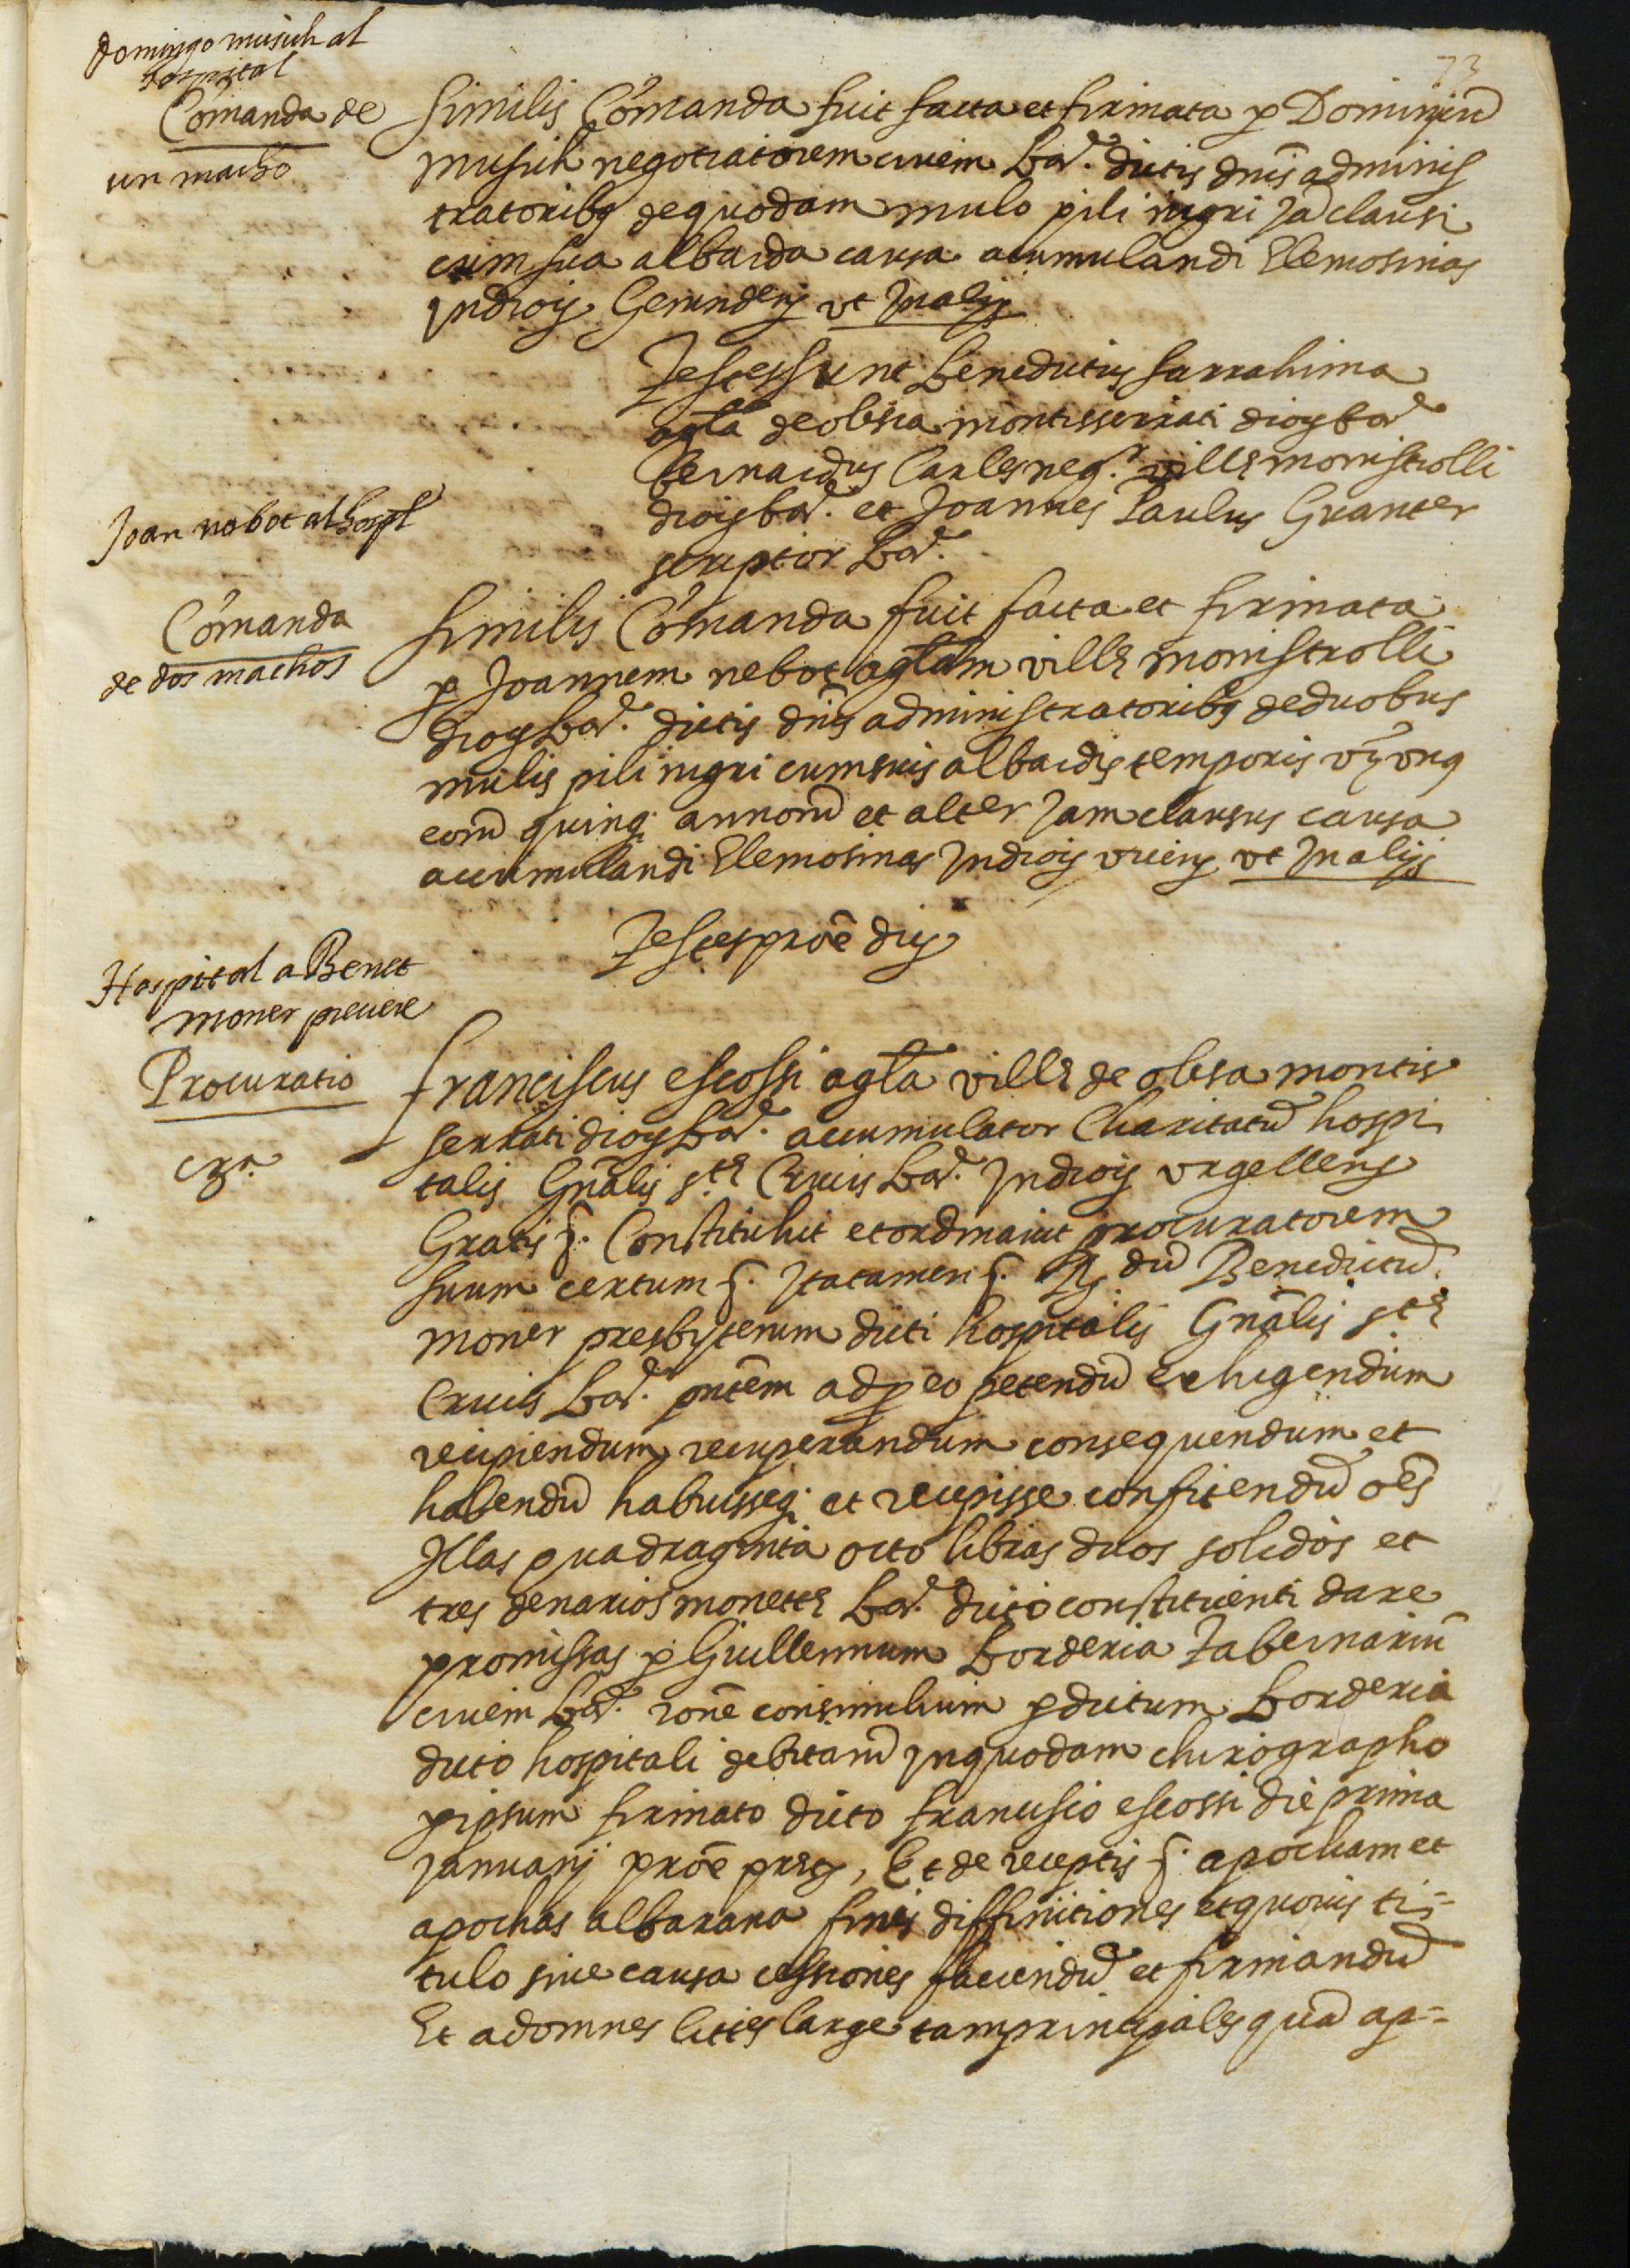 73
domingo musich al
hospital
Comanda de
un macho
Similis Comanda fuit facta et firmata p Dominicū
musich negotiatorem civem Bar. dictis dnīs adminis
tratoribꝫ de quodam mulo pili nigri Jā clausi
cum sua albarda causa acumulandi Elemosinas
Jn diocis Gerunden̄ ut Jn alijs
Testes sunt Benedictus sarrahima
agla de olesa montisserrati diocis bar
bernardus Carles neg.r villę monistrolli
diocis bar. et Joannes Paulus Granter
scriptor Bar.
Joan nabot al hospl
Comanda
de dos machos
Similis Comanda fuit facta et firmata
p Joannem nebot aglam villę monistrolli
diocis Bar. dictis dnīs administratoribꝫ de duobus
mulis pili nigri cum suis albardis temporis vꝫ unꝰ
eorū quinqꝫ annorū et alter Jam clausus causa
acumulandi Elemosinas Jn diocis vicen̄ ut Jn alijs
Testes proē dicti
Hospital a Benet
moner prevere
Procuratio
Franciscus escossi agla villę de olesa montis
serrati diocis Bar. acumulator Charitatū hospi
talis Gnālis s.tę Crucis Bar. Jn diocis urgellen̄
Gratis §. Constituhit et ordinavit procuratorem
suum certum §. Jta tamen §. R. dū Benedictū
moner presbyterum dicti hospitalis Gnālis s.tę
Crucis Bar. pntēm ad p eo petendū exhigendum
recipiendum recuperandum consequendum et
habendū habuisseqꝫ et recepisse confitendū oēs
Jllas quadraginta octo libras duos solidos et
tres denarios monetę Bar. dicto constituenti dare
promissas p Guillermum Borderia Tabernariū
civem Bar. ronē consimilium p dictum Borderia
dicto hospitali debitarū Jn quodam chirographo
p ipsum firmato dicto francisco escossi die prima
Januarij proē pret, Et de receptis §. apocham et
apochas albarana fines diffinitiones et quovis ti=
tulo sive causa cessiones faciendū et firmandū
Et ad omnes lites large tam principales quā ap=